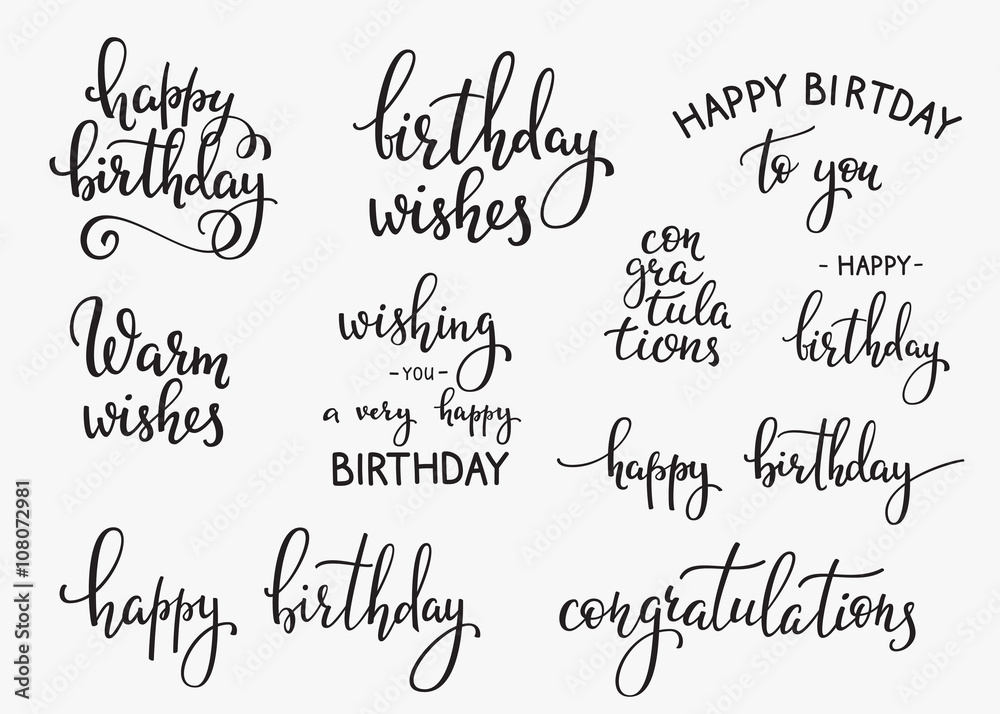 happy
birthday
birthday
wishes
HAPPY BIRTDAY
to you
con
gra
tula
tions
- HAPPY -
birthday
Warm
wishes
wishing
- YOU -
a very happy
BIRTHDAY
happy birthday
happy birthday
congratulations
Adobe Stock | #108072981